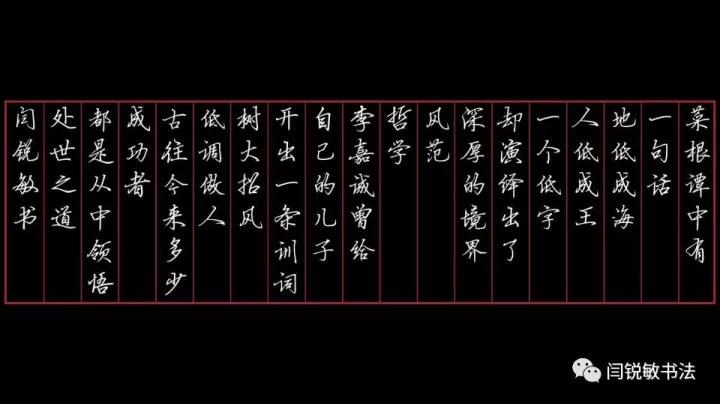 菜根谭中有
一句话
地低成海
人低成王
一个低字
却演绎出了
深厚的境界
风范
哲学
李嘉诚曾给
自己的儿子
开出一条训词
树大招风
低调做人
古往今来多少
成功者
都是从中领悟
处世之道
闫锐敏书
闫锐敏书法